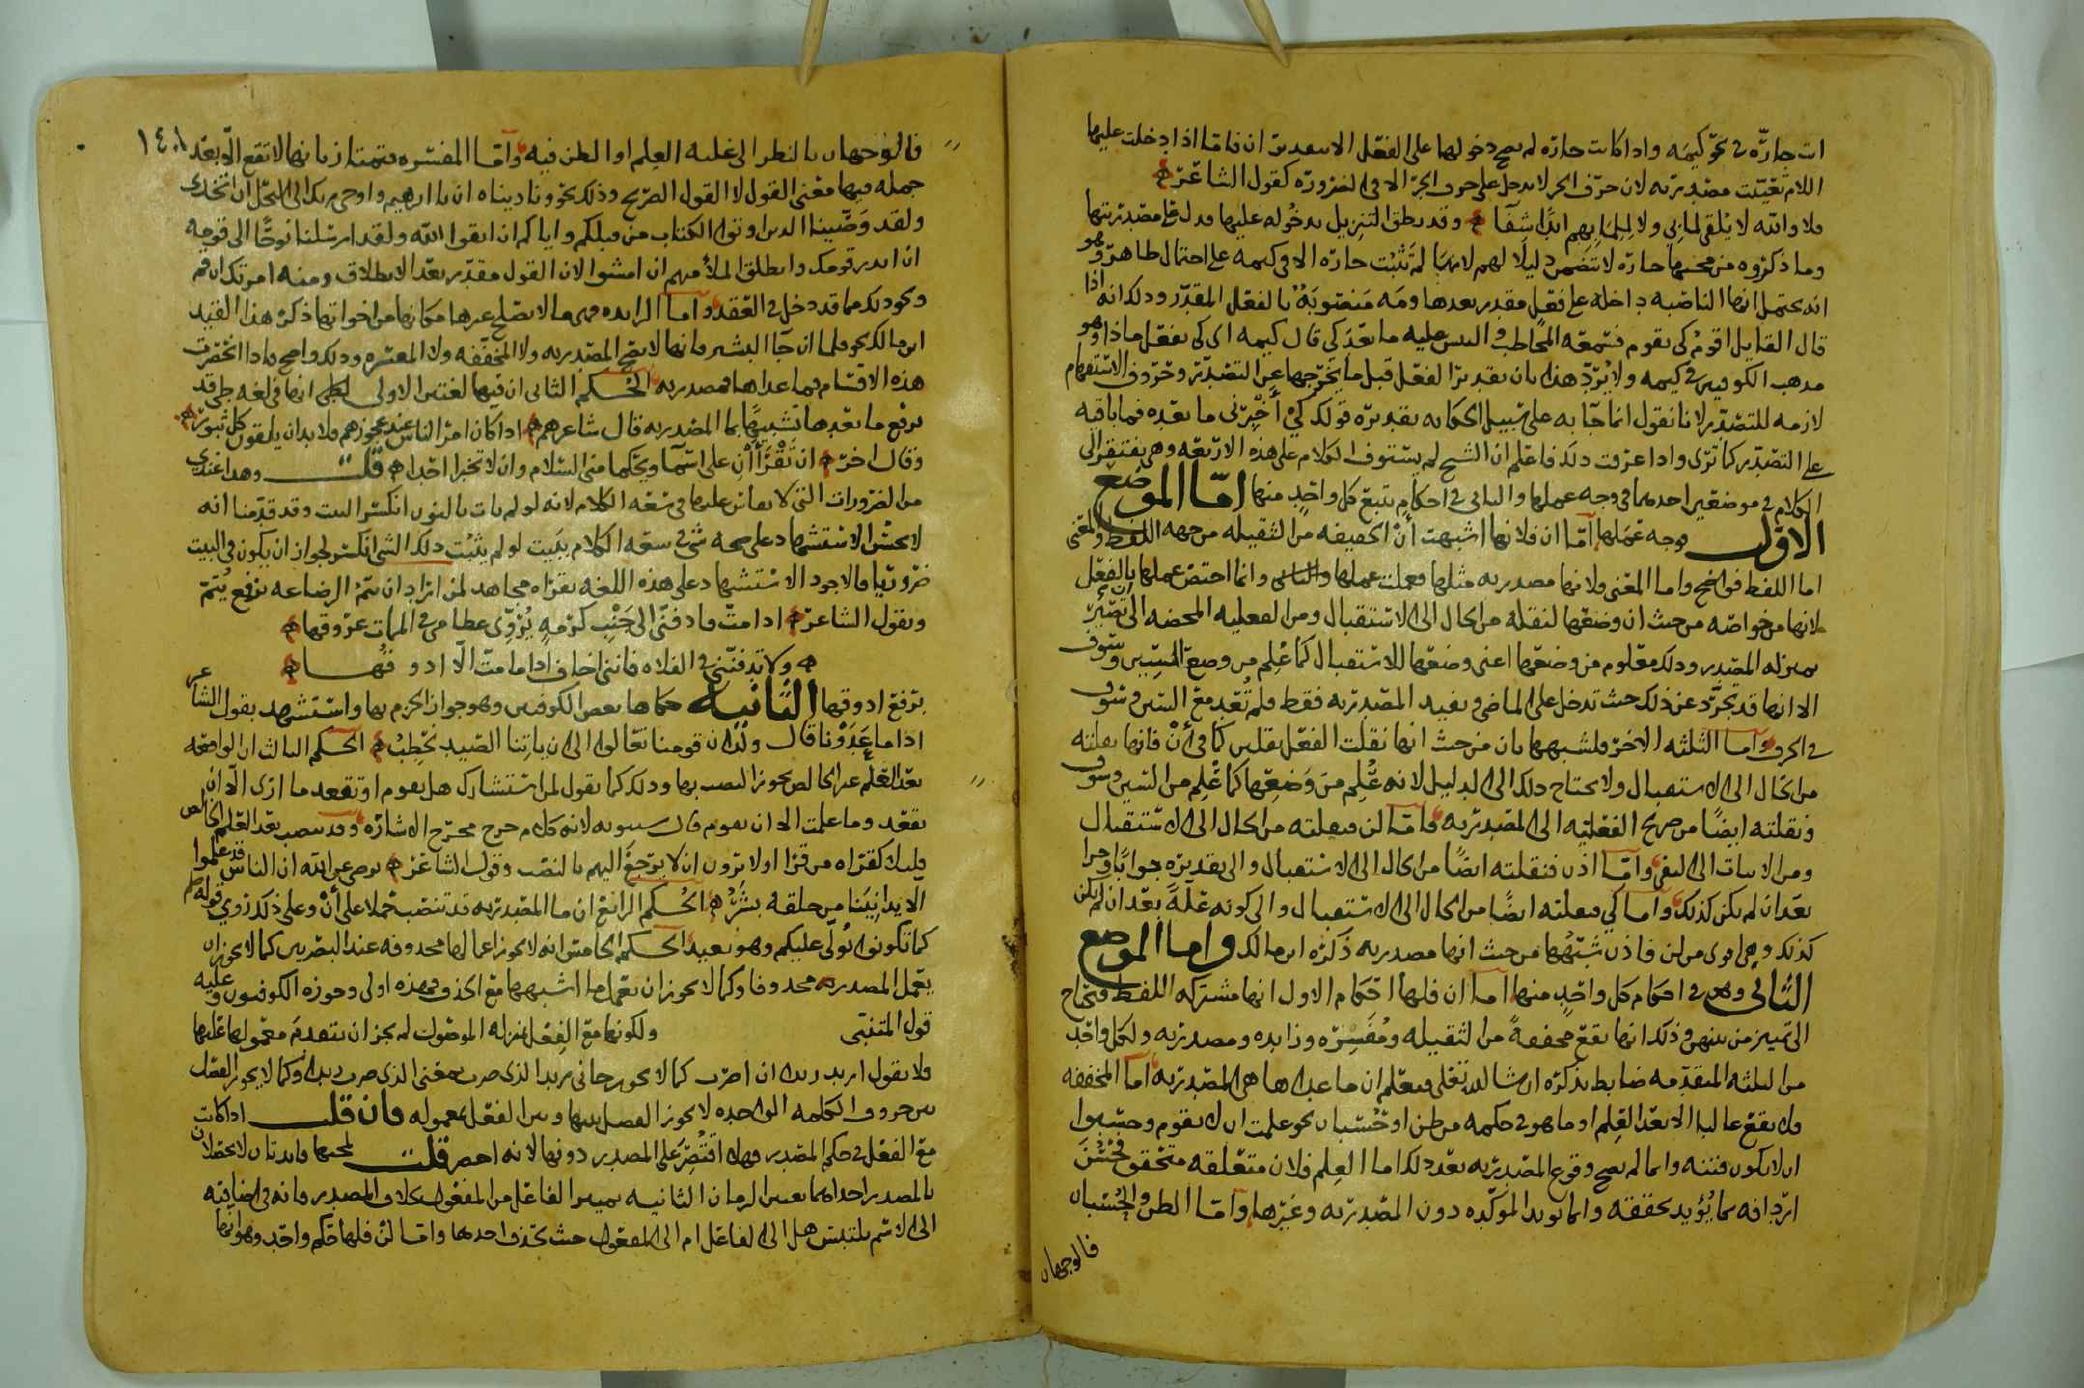 ات جارّه في نحو كيمه واذا كانت جارّه لم يصح دخولها على الفعل الا بتقدير ان فاما اذا دخلت عليها
اللام تعيّنت مصدريه لان حرف الجر لا يدخل على حرف الجر الا في الضروره كقول الشاعر
فلا والله لا يلقى لما بي ولا للما بهم ابدًا شفا وقد نطق التنزيل بدخوله عليها فدل على مصدريتها
وما ذكروه من مجيها جاره لا تتضمن دليلًا لهم لانها لم تثبت جاره الا في كيمه على احتمال ظاهر وهو
انه يحتمل انها الناصبه داخله على فعل مقدر بعدها ومه منصوبة بالفعل المقدّر وذلك انه اذا
قال القايل اقوم كي تقوم فسمعه المخاطب والتبس عليه ما بعد كي قال كيمه اي كي يفعل ماذا وهو
مذهب الكوفيين في كيمه ولا يردّ هذا بان تقدير الفعل قبل ما يخرجها عن التصدّر وحروف الاستفهام
لازمه للتصدّر لانا نقول انما جا به على سبيل الحكايه تقديره قولك كي أخبرنى ما بعده فما باقيه
على التصدّر كما ترى واذا عرفت ذلك فاعلم ان الشيخ لم يستوف الكلام على هذه الاربعه وهي يفتقر الى
الكلام في موضعين احدهما في وجه عملها والثاني في احكام تتبع كل واحد منها امّا الموضع
الاوّل فوجه عملها امّا ان فلانها اشبهت أنْ الخفيفه من الثقيله من جهه اللفظ والمعنى
اما اللفظ فواضح واما المعنى ولانها مصدريه مثلها فعملت عملها وانما اختص عملها بالفعل
لانها من خواصّه من حيث ان وضعها لنقله من الحال الى الاستقبال ومن الفعليه المحضه الى تصيّره
بمنزله المصدر وذلك معلوم من وضعها اعني وضعها للاستقبال كما عُلِم من وضع السين وسوف
الا انها قد تجرّد عن ذلك حيث تدخل على الماضي وتفيد المصدريه فقط فلم تُعَد مع السين وسوف
في الحرف وامّا الثلثه الاخر فلشبهها بان من حيث انها نقلت الفعل نقلين كما في أنْ فانها نقلته
من الحال الى الاستقبال ولا يحتاج ذلك الى الدليل لانه عُلِم من وَضعِها كما عُلِم من السين وسوف
ونقلته ايضًا من صريح الفعليّه الى المصدريه فامّا لن فنقلته من الحال الى الاستقبال
ومن الاثبات الى النفي وامّا اذن فنقلته ايضًا من الحال الى الاستقبال والى تقديره جوابًا وجزا
بعد ان لم يكن كذلك وامّا كي فنقلته ايضًا من الحال الى الاستقبال والى كونه علّةً بعد ان لم يكن
كذلك وهي اقوى من لن واذن شبهًا من حيث انها مصدريه ذكره ابن مالك واما الموضع
الثاني وهو في احكام كل واحد منها امّا ان فلها احكام الاول انها مشتركه اللفظ وتحتاج
الى تمييز من بينهن وذلك انها تقع مخففةً من الثقيله ومُفسّره وزايده ومصدريه ولكل واحد
من الثلثه المتقدّمه ضابط نذكره ان شا الله تعالى فتعلم ان ما عداها هي المصدريه اما المخففه
فلا تقع غالبا الا بعد العِلم او ما هو في حكمه من ظن او حُسبان نحو علمت ان لا يقوم وحسبوا
ان لا تكون فتنه وانما لم يصح وقوع المصدريه بعد ذلك اما العِلم فلان متعلقه متحقق فحَسُنَ
اردافه بما يُؤيد تحققه وانما تويد المؤكّده دون المصدريه وغيرها وامّا الظن والحُسبان
فالوجهان
١٤٠١
فالوجهان بالنظر الى غلبه العِلم او الظن فيه وامّا المفسّره فتمتاز بانها لا تقع الّا بعد
جمله فيها معنى القول لا القول الصريح وذلك نحو وناديناه ان يا ابرهيم واوحى ربك الى النحل ان اتخذي
ولقد وَصّينا الذين اوتوا الكتاب من قبلكم واياكم ان اتقوا الله ولقد ارسلنا نوحًا الى قومه
ان انذر قومك وانطلق الملأ منهم ان امشوا لان القول مقدّر بعد الانطلاق ومنه امرتك ان قم
ونحو ذلك مما قد دخل في العقد واما الزايده فهي ما لا تصلح غيرها مكانها من اخواتها ذكر هذا القيد
ابن مالك نحو فلما ان جا البشير فانها لا تصح المصدريه ولا المخفّفه ولا المفسّره وذلك واضح فاذا انحصرت
هذه الاقسام فما عداها فمصدريه الحُكم الثاني ان فيها لغتين الاولى انها في لغه طي قد
يرفع ما بعدها تشبيهًا بما المصدريه قال شاعرهم اذا كان امر الناس عند عجوزهم فلا بد ان يلقون كل ثبور
وقال اخر ان تَقْرَأانِ على اسْما ويحكما منى السّلام وان لا تخبرا احدا قلت وهذا عندي
من الضرورات التي لا يقاس عليها في سَعه الكلام لانه لو لم يات بالنون انكسر البيت وقد قدّمنا انه
لا يحسُن الاستشهاد على صحه شي في سعه الكلام ببَيت لو لم يثبُت ذلك الشي انكسر لجواز ان يكون في البيت
ضروريًا فالاجود الاستشهاد على هذه اللغه بقراه مجاهد لمن اراد ان يتمُ الرضاعه برفع يُتمّ
وبقول الشاعر اذا متّ فادفنّي الى جَنْبِ كرمهٍ يُرَوِّي عظامي في الممات عروقها
ولا تدفنّني في الفلاه فانني اخاف اذا ما متّ الّا اذوقُها
برفع اذوقها الثّانيه حكاها بعض الكوفيين وهو جواز الجزم بها واستشهد بقول الشاعر
اذا ما غَدَوْنا قال ولدان قومنا تعالوا الى ان ياتِنا الصّيد نحْطِبْ الحكم الثالث ان الواقعه
بعد العِلم غير الخالص يجوز النصب بها وذلك كما تقول لمن استشارك هل يقوم او تقعد ما ارى الّا ان
تقعُد وما علمت الا ان تقوم قال سيبويه لانه كلام خرج مخرج الاشاره وقد تنصب بعد العِلم الخالص
وذلك كقراه من قرا اولا يرون ان لا يرجعَ اليهم بالنصب وقول الشاعر نرضى عن الله ان الناس قد علموا
الّا يدانِيَنا من خلقه بشَرُ الحُكم الرابع ان ما المصدريه قد تنصب حملا على أنْ وعلى ذلك رُوي قوله صلعم
كما تكونوا يُولّى عليكم وهو بعيد الحكم الخامس انه لا يجوز اعمالها محذوفه عند البصريين كما لا يجوز ان
يعمل المصدر محذوفا وكما لا يجوز ان تعمل ما اشبهها مع الحذف فهذه اولى وجوزه الكوفيون وعليه
قول المتنبّي ولكونها مع الفِعل بمنزله الموصول لم يجز ان يتقدم معمولها عليها
فلا تقول اريد زيدا ان اضرب كما لا يجوز جاني زيدا الذي ضرب بمعنى الذي ضرب زيدا وكما لا يجوز الفصل
بين حروف الكلمه الواحده لا يجوز الفصل بينها وبين الفعل بمعموله فان قلت اذا كانت
مع الفعل في حكم المصدر فهلا اقتُصِرَ على المصدر دونها لانه اخصر قلت لمجيها فايدتان لا يحصلان
بالمصدر احداهما تعيين الزمان الثانيه تمييز الفاعل من المفعول بخلاف المصدر فانه في اضافته
الى الاسم ملتبس هل الى الفاعل ام الى المفعول حيث يحذف احدها وامّا لن فلها حكم واحد وهو انها